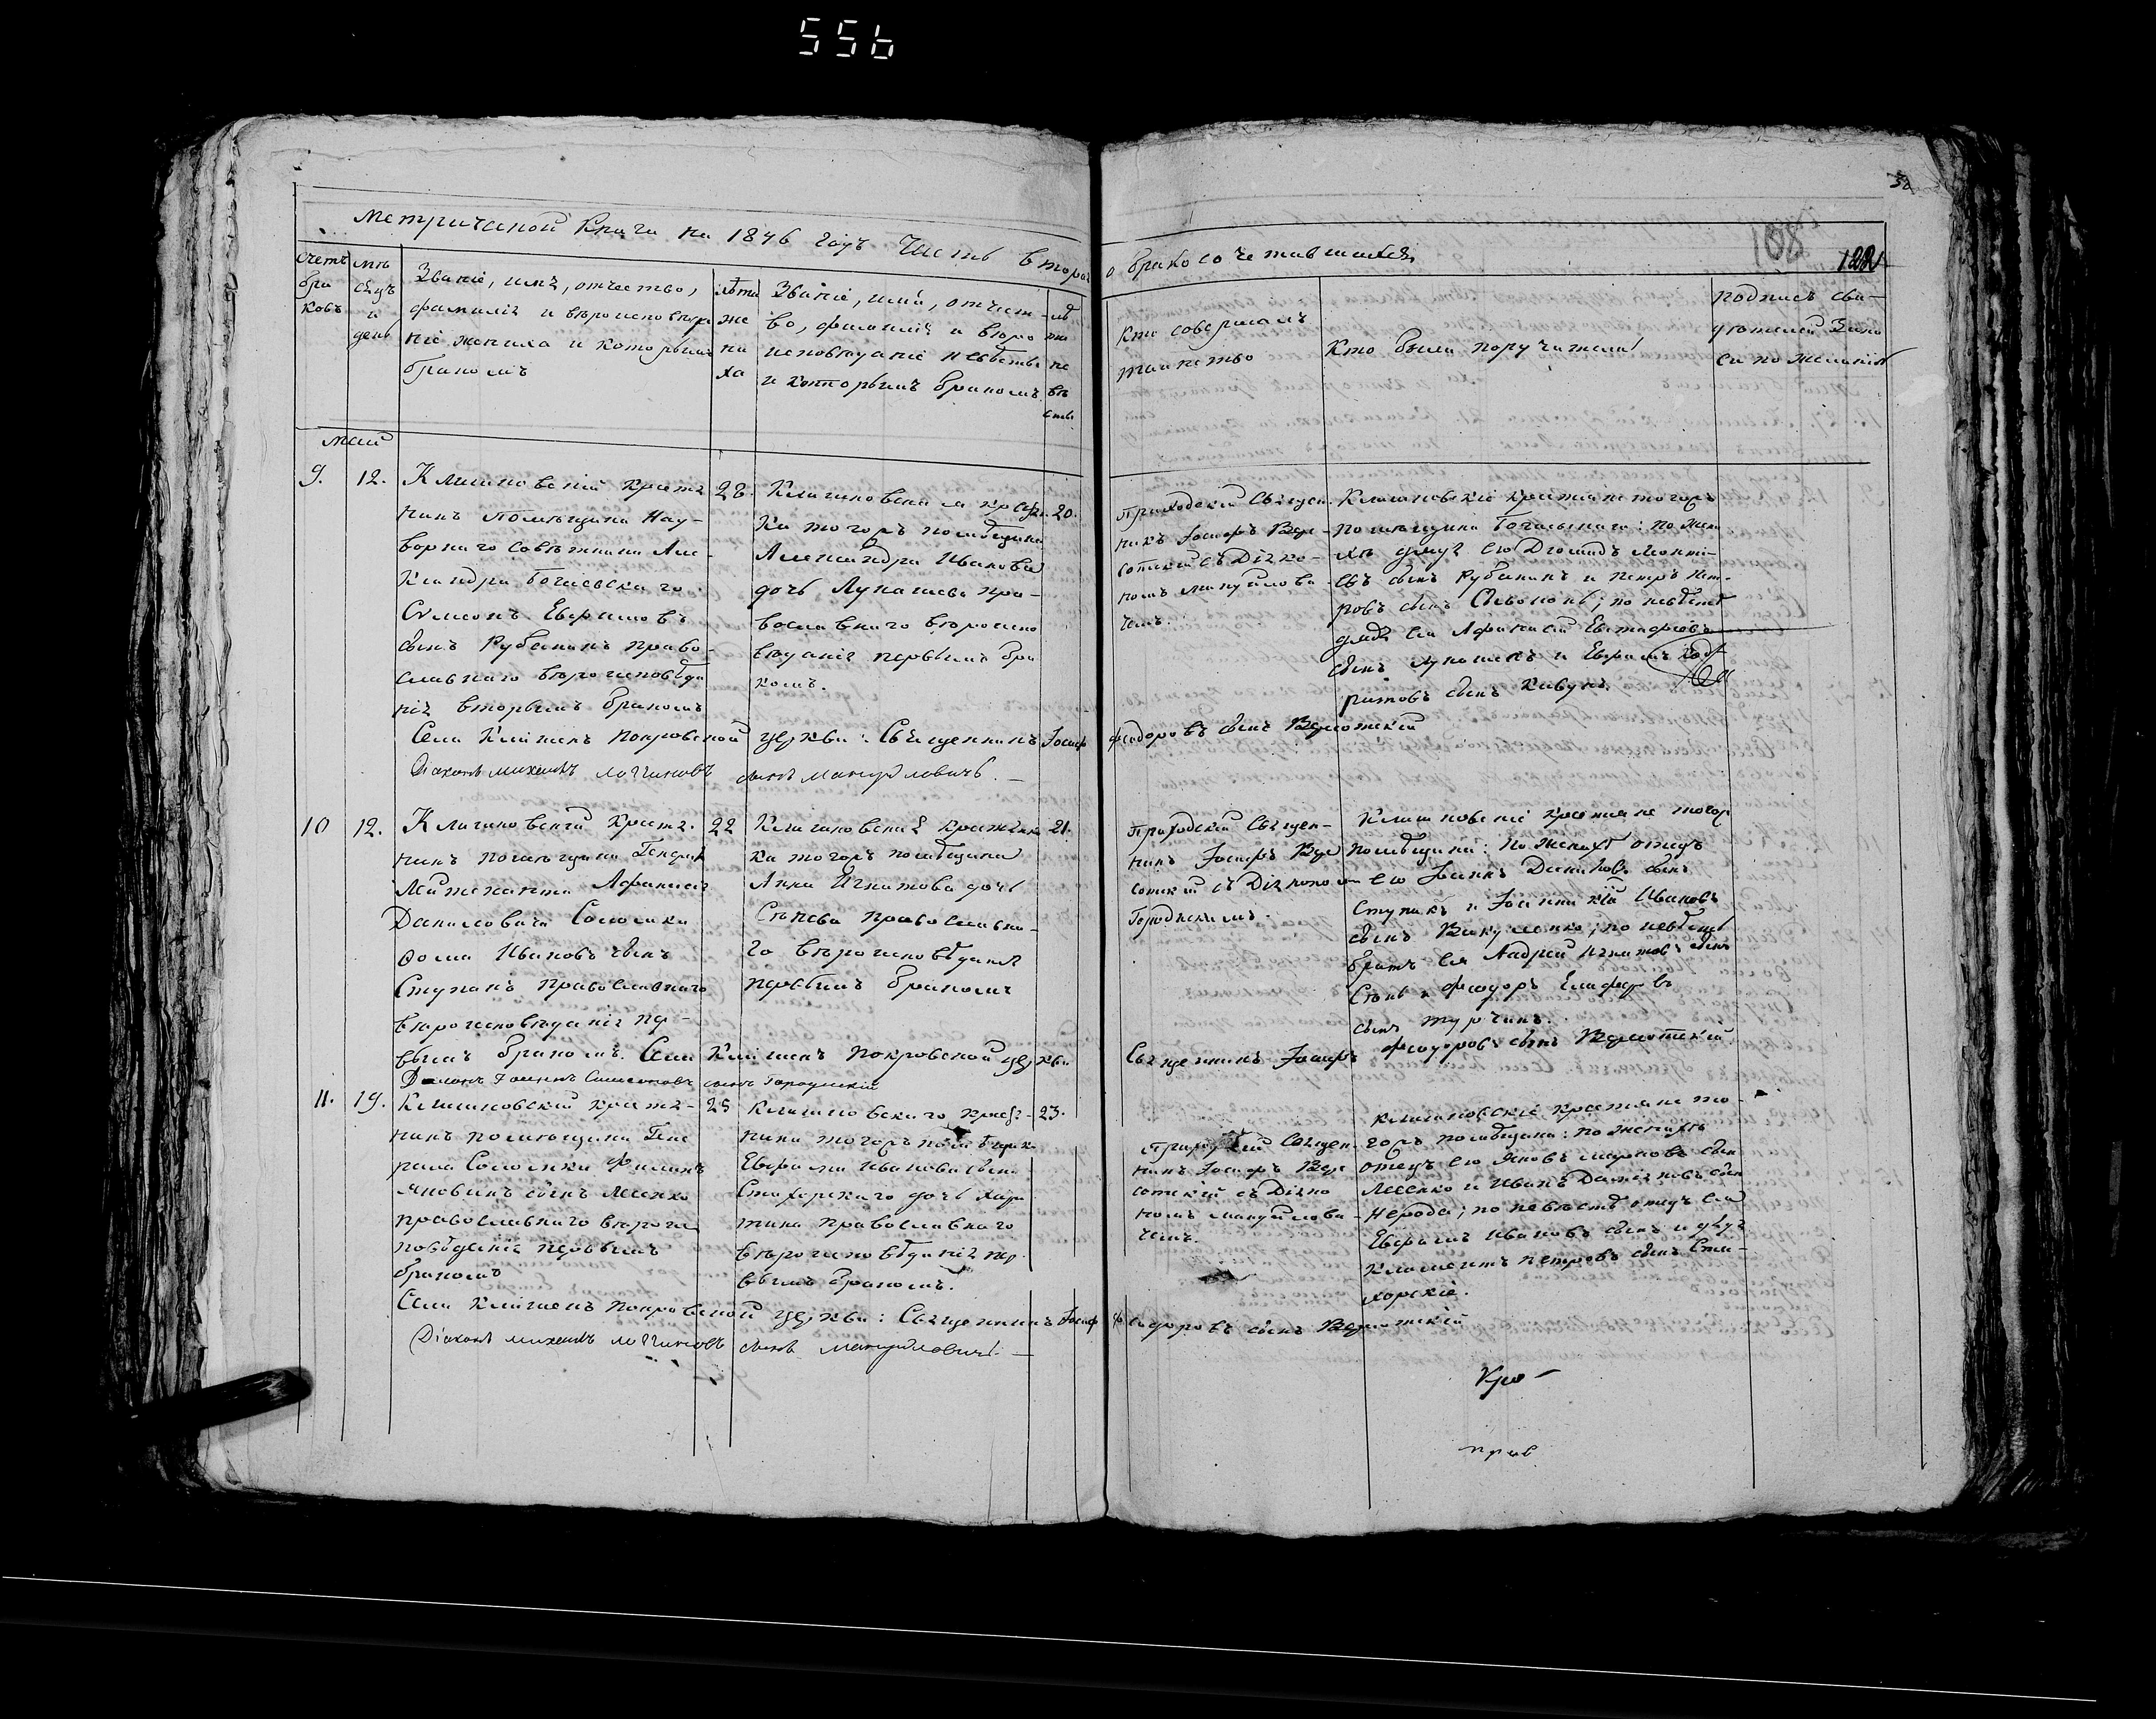 556
Метрической Книги на 1846 годъ Часть вторая
о бракосочетавшихся
108
122
Счетъ браковъ
мѣсяцъ и день
Званіе, имя, отчество,
фамилія и вѣроисповѣда
ніе жениха и которымъ
бракомъ
лѣта
же
ни
ха
Званіе, имя, отчест-
во, фамилія и вѣро
исповѣданіе невѣсты
и которымъ бракомъ
лѣ
та
не
вѣ
сты
Кто совершалъ
таинство
Кто были поручители
подпись сви-
дѣтелей записи
по желанію
май
9. 12.
Клишковскій крестья
нинъ помѣщика На-
ворнаго совѣтника Але-
ксандра Богаевскаго
Сѵмеонъ Ефремовъ
сынъ Рубанинъ право-
славнаго вѣроисповѣда
нія вторымъ бракомъ
28.
того ж помѣщика
Александра Иванова
дочь Лукашева пра-
вославнаго вѣроиспо
вѣданія первымъ бра
комъ.
20.
Приходскій Священ-
никъ Іосифъ
съ Діако-
номъ Мануйлови-
чемъ.
Клишковскіе крестьяне тогож
помѣщика Богаевскаго: по жени-
хѣ дядя его Діомидъ Леонти-
евъ сынъ Рубанинъ и Петръ Пет-
ровъ сынъ ; по невѣстѣ
дядя ея Афанасій
сынъ Лукашекъ и Ефремъ
сынъ Кавунъ.
Села Клишекъ Покровской церкви: Священникъ Іосиф Феодоровъ сынъ
Діаконъ Михаилъ Логгиновъ сынъ Мануйловичъ.
10 12.
Клишковскій крестья
нинъ помѣщика Генерал
Лейтенанта Афанасія
Даниловича Соломки
Фома Ивановъ сынъ
Ступакъ православнаго
вѣроисповѣданія пер-
вымъ бракомъ.
22
Клишковская крестьян
ка тогожъ помѣщика
Анна Игнатова дочь
православна-
го вѣроисповѣданія
первымъ бракомъ
21.
Приходскій Священ-
никъ Іосифъ
съ Діакономъ
Городискимъ.
Клишковскіе крестьяне тогож
помѣщика: по женихѣ отецъ
его Іоаннъ Даниловъ сынъ
Ступакъ и Іоанникій Ивановъ
сынъ Вакуленко; по невѣстѣ
братъ ея Андрей Игнатовъ сынъ
и Феодоръ
сынъ Турчинъ.
Села Клишекъ Покровской церкви
Священникъ Іосифъ Феодоровъ сынъ
Діаконъ Іоаннъ Симеоновъ сынъ Городискій
11. 19.
Клишковскій крестья-
нинъ помѣщика Гене
рала Соломки Филипъ
Яковлевъ сынъ Лесенко
православнаго вѣроис
повѣданія первымъ
бракомъ
25
Клишковскаго крестья-
нина тогожъ помѣщика
Ефрема Иванова сына
Стахорскаго дочь Хари
тина православнаго
вѣроисповѣданія пер-
вымъ бракомъ.
23.
Приходскій Священ-
никъ Іосифъ
съ Діако
номъ Мануйлови-
чемъ.
Клишковскіе крестьяне то-
гожъ помѣщика: по женихѣ
отецъ его Яковъ Мироновъ сынъ
Лесенко и Иванъ Даміановъ сын
Нерода; по невѣстѣ отецъ ея
Ефремъ Ивановъ сынъ и дядя
Климентъ Петровъ сынъ Ста-
хорскіе.
Села Клишекъ Покровской церкви: Священникъ Іосиф Феодоровъ сынъ
Діаконъ Михаилъ Логгиновъ сынъ Мануйловичъ